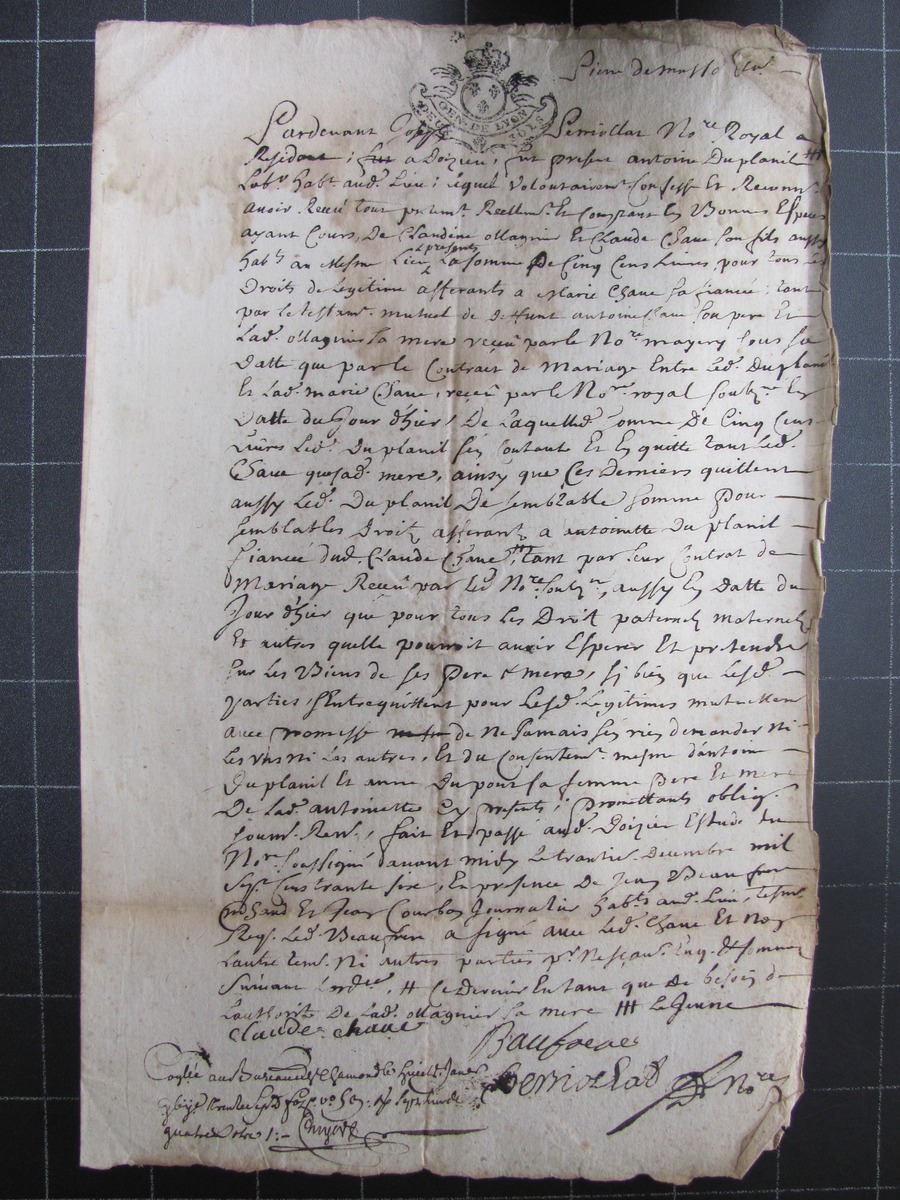 GEN. DE LYON
Pardevant Joseph Berriollat No.re Royal a
Residant; fut a Doizieu; fut presnt antoine Duplanil ♯♯
Lab.r hab.t aud. Lieu; lequel Volontairem.t Confesse Et Reconn.
avoir Receu tout presentem.t Reellem.t Et Comptant En Bonnes Especes
ayant Cours, De Claudine ollagnier Et Claude Chave son fils aussy
hab.ts au Mesme Lieu presents La somme De Cinq Cens Livres, pour tous Les
Droits de Legitime afferants a Marie Chave sa fiancée; tant
par le testam.t mutuel de deffunt antoine Chave son pere Et
Lad. ollagnier sa mere receu par le No.re mayery sous sa
Datte que par le Contrait de Mariage Entre Led. Duplanil
Et Lad. marie Chave, receu par le No.re royal soubz.né En
Datte du Jour d'hier; De Laquelled. somme De Cinq Cens
Livres Led. Duplanil s'en Contant Et En quitte tant Led.
Chave que sad. mere, ainsy que Ces Derniers quittent
aussy Led. Duplanil De semblable somme pour
semblables Droits afferants a antoinette Duplanil
fiancée dud. Claude Chave, tant par leur Contrat de
Mariage Receu par Led. No.re soubz.né, aussy En Datte du
Jour d'hier que pour tous les Droit paternels maternels
Et autres quelle pourroit avoir Esperer Et pretendre
sur Les Biens de ses pere & mere, si bien que Lesd.
parties s'Entrequittent pour Lesd. Legitimes mutuellem.
avec promesse de ne Jamais s'en rien demander ni
Les uns ni Les autres, Et du Consentem.t mesme d'antoine
Duplanil Et anne Dupont sa femme pere Et mere
De Lad. antoinette Cy presents; promettants oblig.
soum. Ren., fait Et passé aud. Doizieu Estude du
No.re soussigné avant midy Le trantie. Decembre mil
Sept Cens trante six, En presence De Jean Beaufrere
m.chand Et Jean Courbon Journalier hab.ts aud. Lieu, tesm.
Req. Led. Beaufrere a signé avec Led. Chave Et Non
L'autre tem. Ni autres parties p.r Ne scav. Enq. & sommés
suivant L'ordce, ♯ Ce Dernier Entant que De besoin De
L'authorité De Lad. ollagnier sa mere ♯♯ Le Jeune
Claude Chave
Baufrere
Berriollat No.re